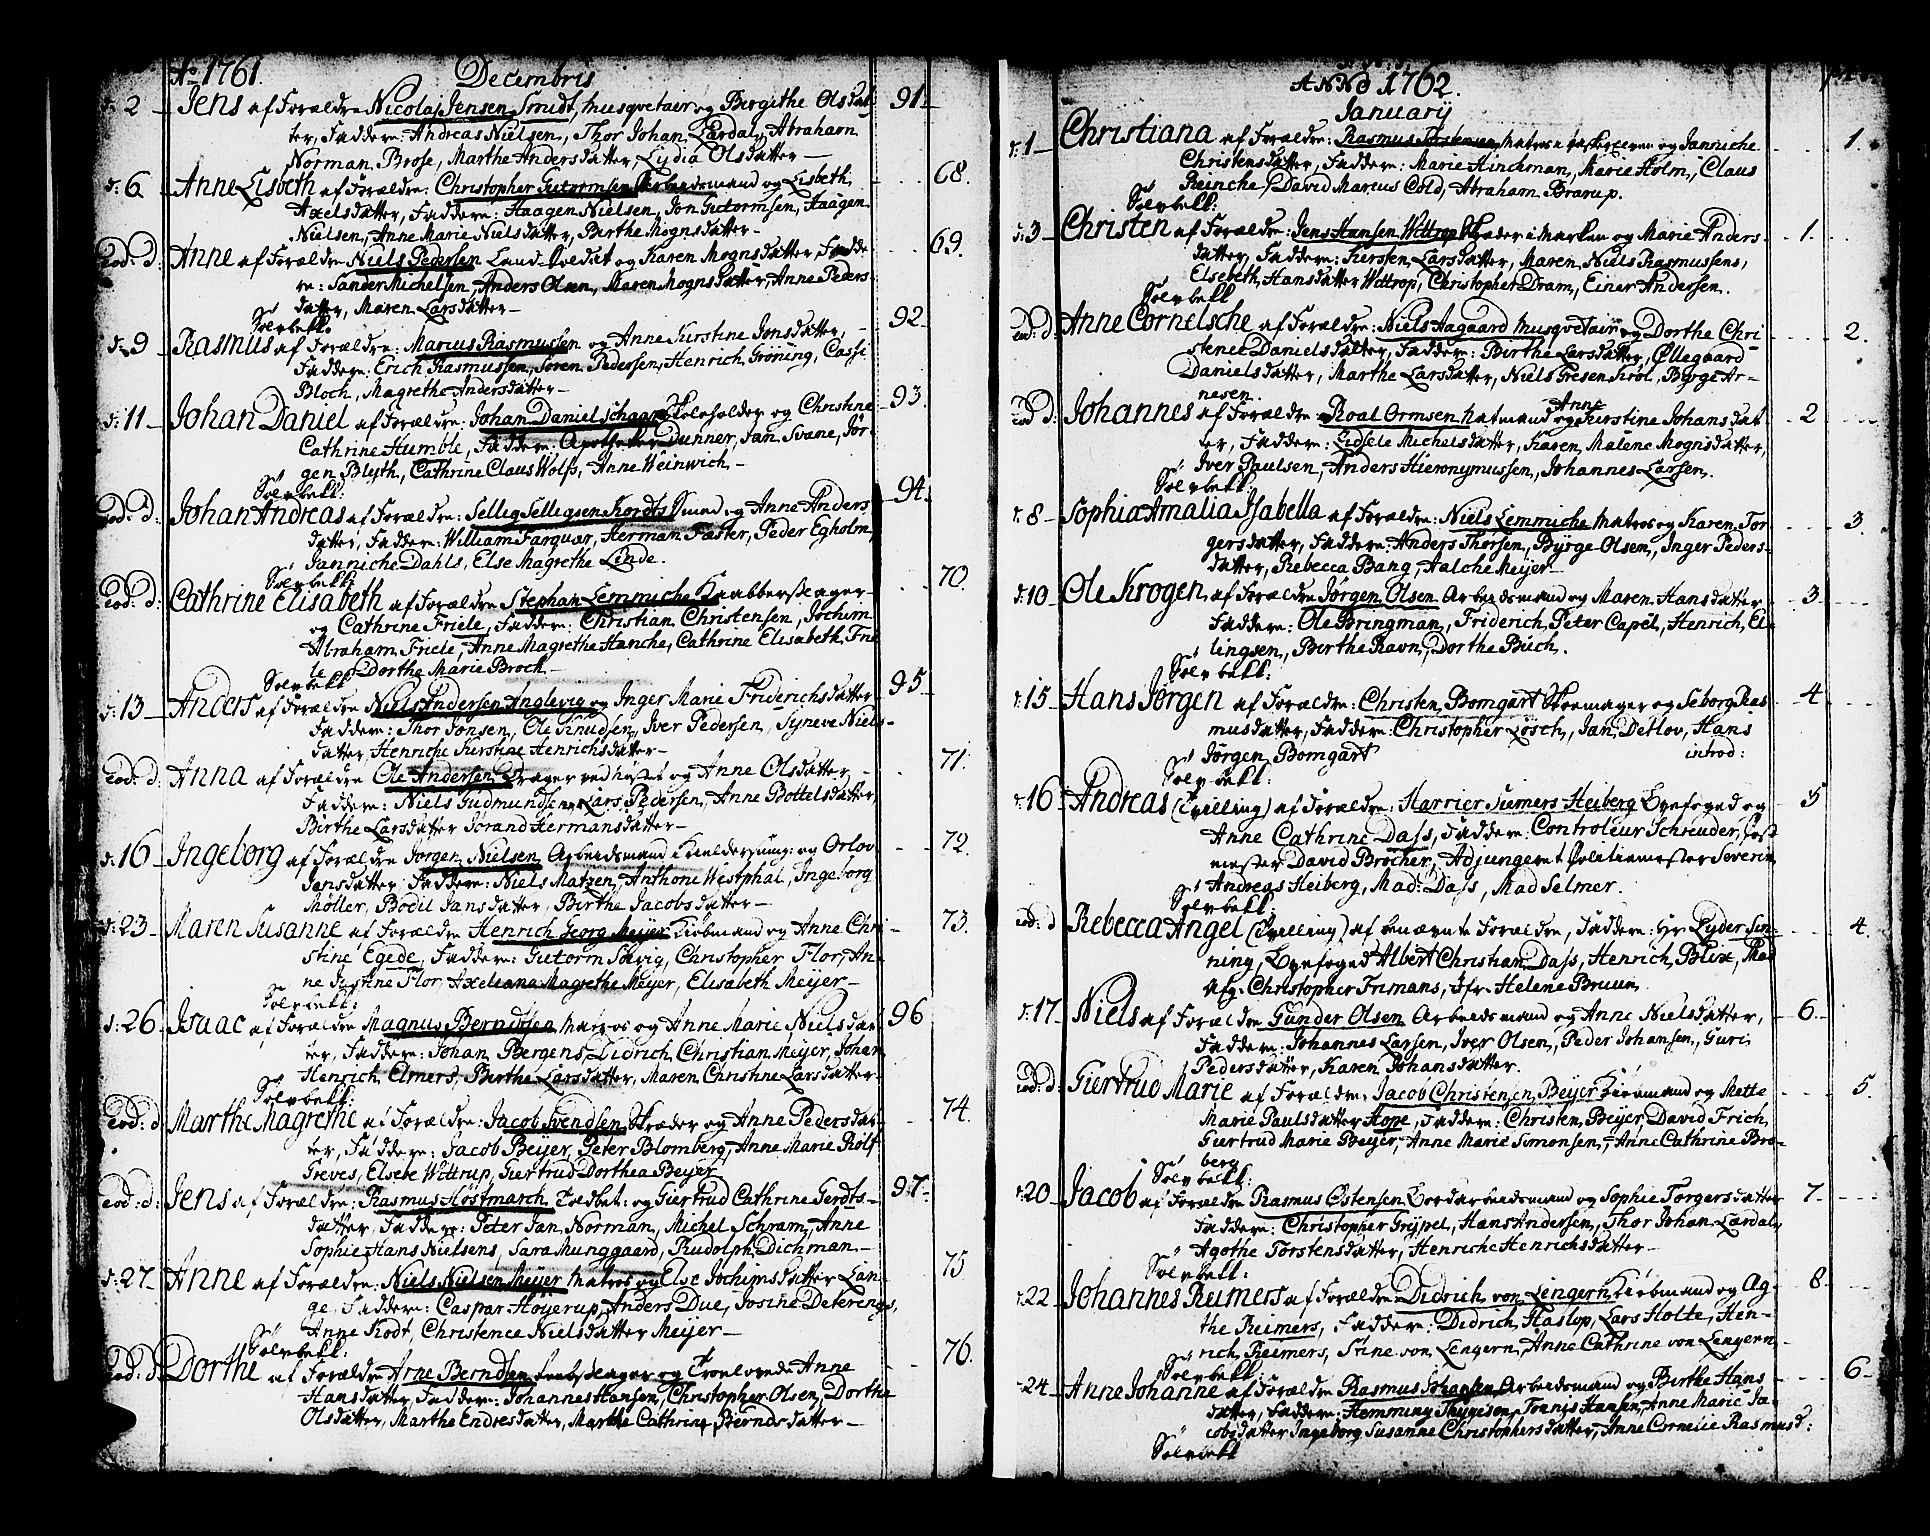 Ao 1761. Decembris
d: 2 Jens af Forældre Nicolaj Jensen Smidt, Musqvetair og Bergithe Olsdat- 91.
ter, Faddere: Andreas Nielsen, Thor Johan Lærdal, Abraham
Norman. Brose, Marthe Andersdatter, Lydia Olsdatter
d: 6 Anne Lisbeth af Forældre: Christopher Gutormsen Arbeidsmand og Lisbeth 68.
Axelsdatter, Faddere: Haagen Nielsen, Jon Gutormsen, Haagen
Nielsen, Anne Marie Nielsdatter, Birthe Mognsdatter
Eod: d: Anne af Forældre Niels Pedersen Land-Soldat og Karen Mognsdatter, Fadde- 69.
re: Sander Michelsen, Anders Olsen, Maren Mognsdatter, Anne Peders-
datter, Maren Larsdatter
Sølvbell:
d: 9 Rasmus af Forældre: Marcus Rasmussen og Anne Kirstine Jonsdatter, 92
Faddere: Erich Rasmussen, Søren Pedersen, Henrich Grøning, Cassi
Bloch, Magrethe Andersdatter
d: 11 Johan Daniel af Forældre: Johan Daniel Schaar Skoleholder og Christine 93.
Cathrine Humble, Faddere: Apotheker Dunner, Jan Svane, Jør-
gen Blyth, Cathrine Claus Wolfs, Anne Weinwich
Sølvbell:
Eod: d: Johan Andreas af Forældre: Sellig Selligsen Kordts Smed og Anne Anders 94.
datter, Faddere: William Farquar, Herman Fæster, Peder Egholm,
Janniche Dahls, Else Magrethe Linde.
Sølvbell:
Eod: d: Cathrine Elisabeth af Forældre Stephan Lemmiche Knabberskager 70.
og Cathrine Friele, Faddere: Christian Christensen, Jochim
Abraham Friele, Anne Magrethe Hanche, Cathrine Elisabeth Frie
le, Dorthe Marie Brock
Sølvbell
d: 13 Anders af Forældre Niels Andersen Anglevig og Inger Marie Friderichsdatter 95
Faddere: Thor Jonsen, Ole Knudsen, Iver Pedersen, Syneve Niels-
datter, Henriche Kirstine Henrichsdatter
Eod: d: Anna af Forældre Ole Andersen Drager ved huset og Anne Olsdatter 71.
Faddere: Niels Gudmundsen, Lars Pedersen, Anne Bottelsdatter,
Birthe Larsdatter Jørand Hermansdatter
d: 16 Ingeborg af Forældre Jørgen Nielsen Arbeidsmand og Orlov 72
Jansdatter, Faddere: Niels Matzen, Anthoni Westphal, Ingeborg
Møller, Bodil Jansdatter, Birthe Jacobsdatter
d: 23 Maren Susanne af Forældre Henrich Georg Meyer Kiøbmand og Anne Chri- 73.
stine Egede, Faddere: Gutorm Solvig, Christopher Flor, An-
ne Justine Flor, Axeliana Magrethe Meyer, Elisabeth Meyer
Sølvbell:
d: 26 Isaac af Forældre Magnus Berndtsen Matros og Anne Marie Nielsdat- 96
ter, Faddere: Johan Bergens, Didrich Christian Meyer, Johan
Henrich Elmers, Birthe Larsdatter, Maren Christine Larsdatter
Sølvbell:
Eod: d Marthe Magrethe af Forældre: Jacob Svendsen Skræder og Anne Pedersdat- 74.
ter, Faddere: Jacob Beyer, Peter Blomberg, Anne Marie Rolf
Greves, Elsebe Wittrup, Giertrud Dorthea Beyer
Eod: d: Jens af Forældre: Rasmus Høstmarch og Giertrud Cathrine Gerdts- 97.
datter, Faddere: Peter Jan Norman, Michel Schram, Anne
Sophie Hans Nielsens, Sara Munggaard, Rudolph Dichman
d: 27. Anne af Forældre: Niels Nielsen Meyer Matros og Else Jochimsdatter Lan- 75
ge, Faddere: Caspar Høyerup, Anders Due, Josine Deterings,
Anne Kodt, Christence Nielsdatter Meyer
Sølvbell:
Eod: d Dorthe af Forældre Arne Berndsen og Anne 76.
Hansdatter, Faddere: Johannes Hansen, Christopher Olsen, Dorthe
Olsdatter, Marthe Endresdatter, Marthe Cathrine Berndsdatter
ANNO 1762.
January
d: 1 Christiana af Forældre: Rasmus Torstensen Matros og Janniche 1.
Christensdatter, Faddere: Marie Hinckman, Marie Holm, Claus
Reinche, David Marcus Cold, Abraham Brarup.
Sølvbell:
d: 3 Christen af Forældre: Jens Hansen Wittrop Skræder i Marken og Marie Anders- 1.
datter, Faddere: Kiersten Larsdatter, Maren Niels Rasmussens,
Elsebeth Hansdatter Wittrop, Christopher Dram, Einer Andersen.
Sølvbell
Eod: d: Anne Cornelsche af Forældre: Niels Aagaard Musqvetair og Dorthe Chri- 2.
stence Danielsdatter, Faddere: Birthe Larsdatter, Øllegaard
Danielsdatter, Marthe Larsdatter, Niels Gresen Krøl, Byrge Ar-
nesen.
Eod d: Johannes af Forældre Roal Ormsen Matmand og Anne Kirstine Johansdat- 2
ter, Faddere: Eidsele Michelsdatter, Karen Malene Mognsdatter,
Iver Paulsen, Anders Hieronymussen, Johannes Larsen.
Sølvbell:
d: 8 Sophia Amalia Isabella af Forældre: Niels Lemmiche Matros og Karen Tor- 3
gersdatter, Faddere: Anders Thorsen, Byrge Olsen, Inger Peders-
datter, Rebecca Bang, Aalche Meyer
d: 10 Ole Krogen af Forældre Jørgen Olsen Arbeidsmand og Maren Hansdatter 3
Faddere: Ole Bringman, Friderich Peter Capel, Henrich El-
lingsen, Berthe Ravn, Dorthe Büch.
Sølvbell:
d: 15 Hans Jørgen af Forældre: Christen Bomgart Skoemager og Seborg Ras 4
musdatter, Faddere: Christopher Losch, Jan Detlov, Hans
Jørgen Bomgart introd:
Sølvbell:
d: 16 Andreas (Tvilling) af Forældre: Harrier Siemers Heiberg Byefoged og 5
Anne Cathrine Dass, Faddere: Controleur Schreuder, Post
mester David Brøcher, Adjungeret Politiemester Severin
Andreas Heiberg, Mad: Dass, Mad Selmer.
Sølvbell:
eod: d Rebecca Angel (Tvilling) af benævnte Forældre, Faddere: Hr Lyder Sin- 4.
ning, Byefoged Albert Christian Dass, Henrich Blix, Mad
Afg. Christopher Frimans, Jfr. Helene Bruun
d: 17. Niels af Forældre Gunder Olsen Arbeidsmand og Anne Nielsdatter, 6
Faddere: Johannes Larsen, Iver Olsen, Peder Johansen, Guri
Pedersdatter, Karen Johansdatter.
eod: d: Giertrud Marie af Forældre: Jacob Christensen Beyer Kiøbmand og Mette 5.
Marie Paulsdatter Hope, Faddere: Christen Beyer, David Frich
Giertrud Marie Beyer, Anne Marie Simonsen, Anne Cathrine Bro-
berg
Sølvbell:
d: 20 Jacob af Forældre Rasmus Østensen Bordarbeidsmand og Sophie Torgersdatter 7.
Faddere: Christopher Grypel, Hans Andersen, Thor Johan Lærdal,
Agothe Torstensdatter, Henriche Henrichsdatter
Sølvbell:
d: 22 Johannes Reimers af Forældre Didrich von Lengern Kiøbmand og Ag- 8
the Reimers, Faddere: Didrich Haslop, Lars Holte, Hen-
rich Reimers, Stine von Lengern, Anne Cathrine von Lengern
Sølvbell:
24 Anne Johanne af Forældre Rasmus Johansen Arbeidsmand og Birthe Hans 6
datter, Faddere: Hemming Thygesen, Tønnis Hansen, Anne Marie Ja-
cobsdatter Ingeborg Susanne Christophersdatter, Anne Cornelie Rasmusd:
Sølvbell